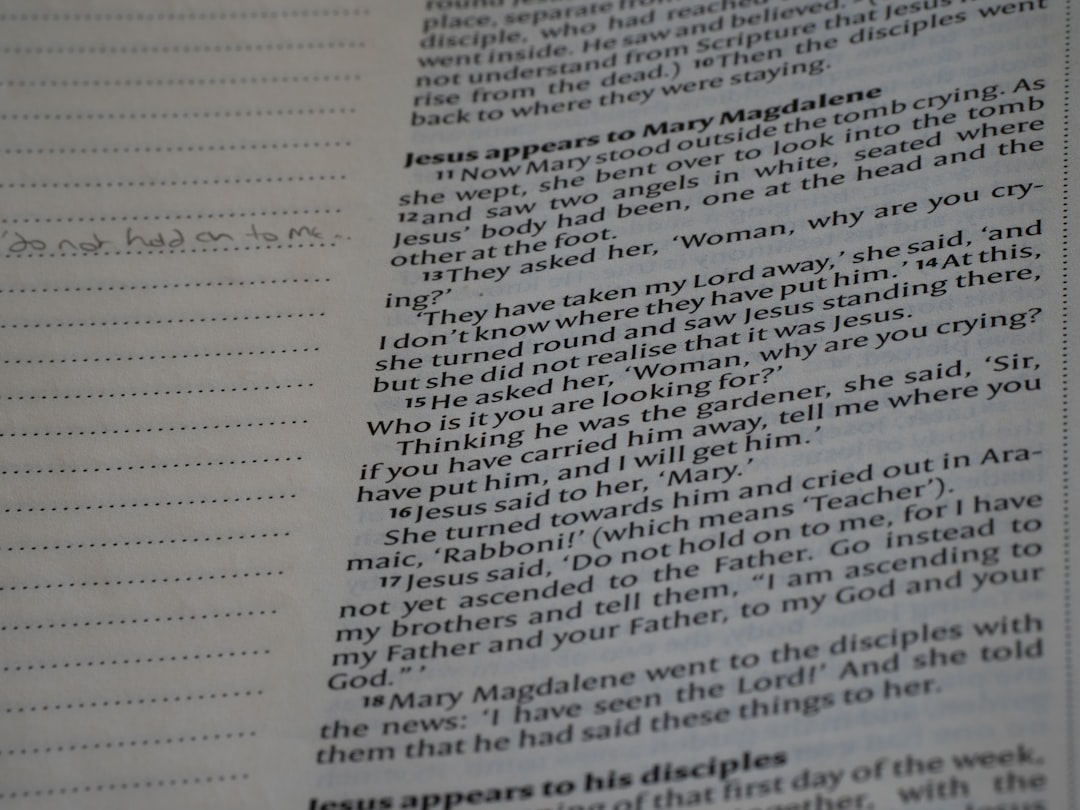 'do not hold on to me...
round Jesus'
place, separate from
disciple, who had reached
went inside. He saw and believed.
not understand from Scripture that Jesus
rise from the dead.) 10 Then the disciples went
back to where they were staying.
Jesus appears to Mary Magdalene
11 Now Mary stood outside the tomb crying. As
she wept, she bent over to look into the tomb
12 and saw two angels in white, seated where
Jesus' body had been, one at the head and the
other at the foot.
13 They asked her, 'Woman, why are you cry-
ing?'
'They have taken my Lord away,' she said, 'and
I don't know where they have put him.' 14 At this,
she turned round and saw Jesus standing there,
but she did not realise that it was Jesus.
15 He asked her, 'Woman, why are you crying?
Who is it you are looking for?'
Thinking he was the gardener, she said, 'Sir,
if you have carried him away, tell me where you
have put him, and I will get him.'
16 Jesus said to her, 'Mary.'
She turned towards him and cried out in Ara-
maic, 'Rabboni!' (which means 'Teacher').
17 Jesus said, 'Do not hold on to me, for I have
not yet ascended to the Father. Go instead to
my brothers and tell them, "I am ascending to
my Father and your Father, to my God and your
God."'
18 Mary Magdalene went to the disciples with
the news: 'I have seen the Lord!' And she told
them that he had said these things to her.
Jesus appears to his disciples
of that first day of the week,
with the